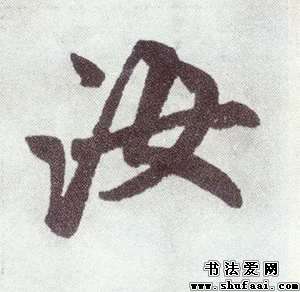 汝
书法爱网
www.shufaai.com